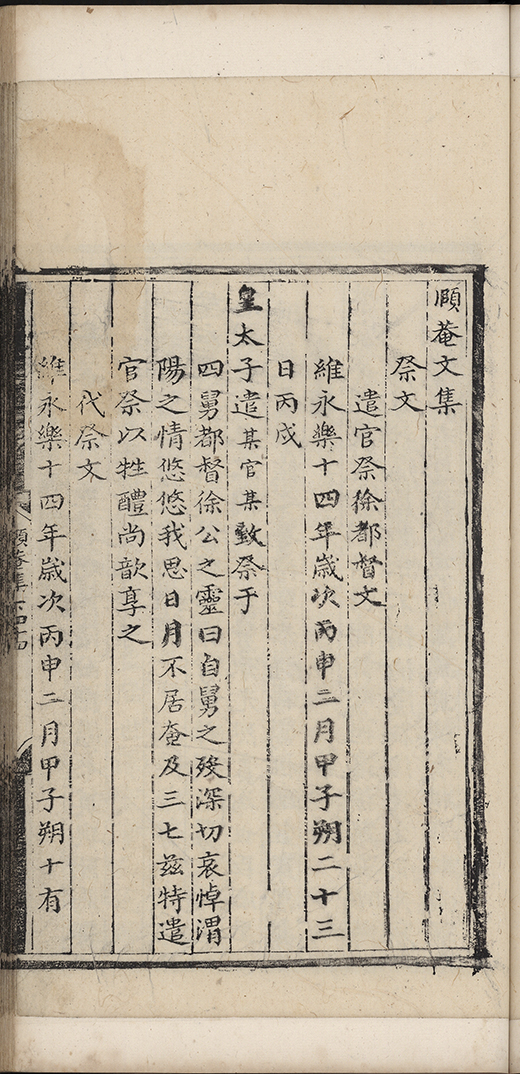 頥菴文集
祭文
遣官祭徐都督文
維永樂十四年歲次丙申二月甲子朔二十三
日丙戌
皇太子遣某官某致祭于
四舅都督徐公之靈曰自舅之歿深切哀悼渭
陽之情悠悠我思日月不居奄及三七兹特遣
官祭以牲醴尚歆享之
代祭文
維永樂十四年歲次丙申二月甲子朔十有